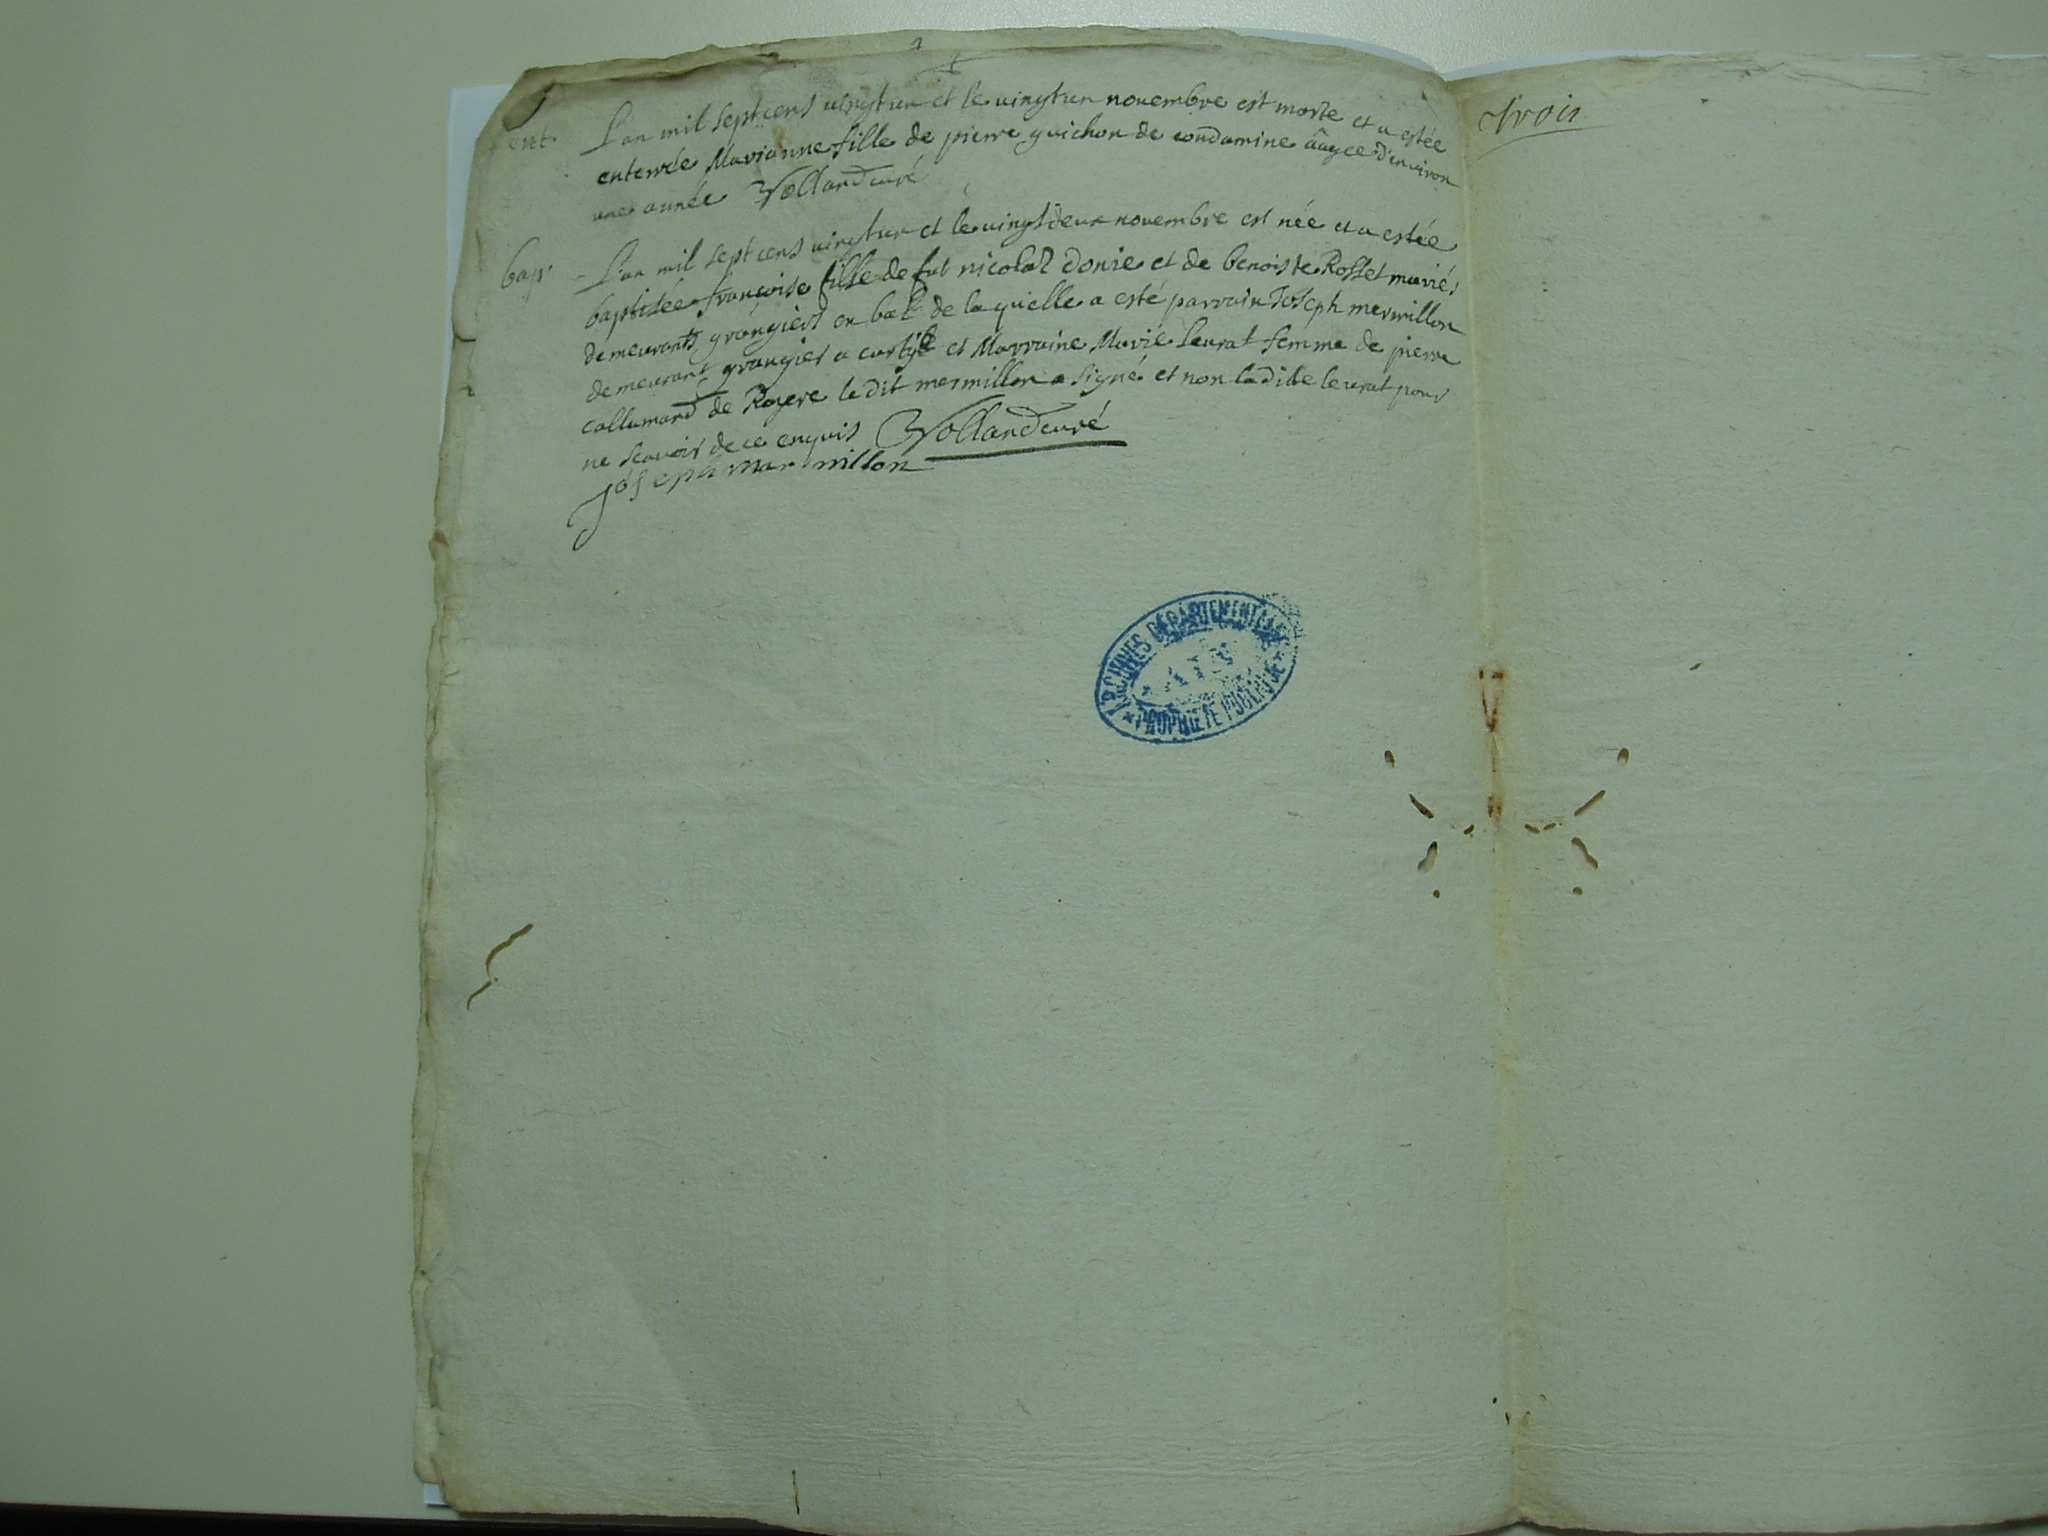 ent. L'an mil sept cens vingt un et le vingt un novembre est morte et a estée
enterrée Marianne fille de pierre guichon de condamine âagée d'environ
une année Volland curé
bap. L'an mil sept cens vingt un et le vingt deux novembre est née et a estée
baptisée françoise fille de fut nicolas donie et de benoiste Rosset mariés
demeurants grangiers en de laquelle a esté parrain Joseph mermillon
demeurant grangier a et Marraine Marie leurat femme de pierre
callumard de Royere le dit mermillon a signé et non la dite leurat pour
ne scavoir de ce enquis Volland curé
joseph marmillon
trois
ARCHIVES DEPARTEMENTALES
AIN
PROPRIETE PUBLIQUE